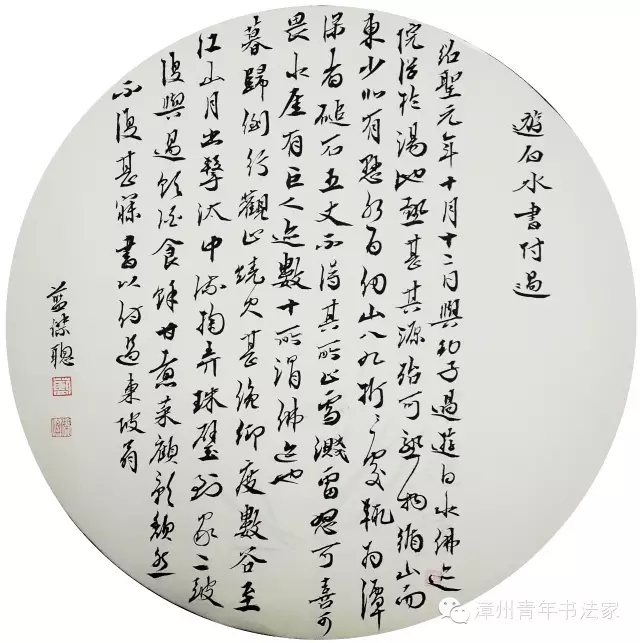 遊白水書付過
紹聖元年十月十二日與幼子過遊白水佛迹
院浴於湯池熱甚其源殆可熟物循山而
東少北有懸水百仞山八九折〻處輒為潭
深者磓石五丈不得其所止雪濺雷怒可喜可
畏水崖有巨人迹數十所謂佛迹也
暮歸倒行觀山燒火甚俛仰度數谷至
江山月出擊汰中流掬弄珠璧到家二鼓
復與過飲酒食餘甘煮菜顧影頹然
不復甚寐書以付過東坡翁
藍聰
漳州青年书法家